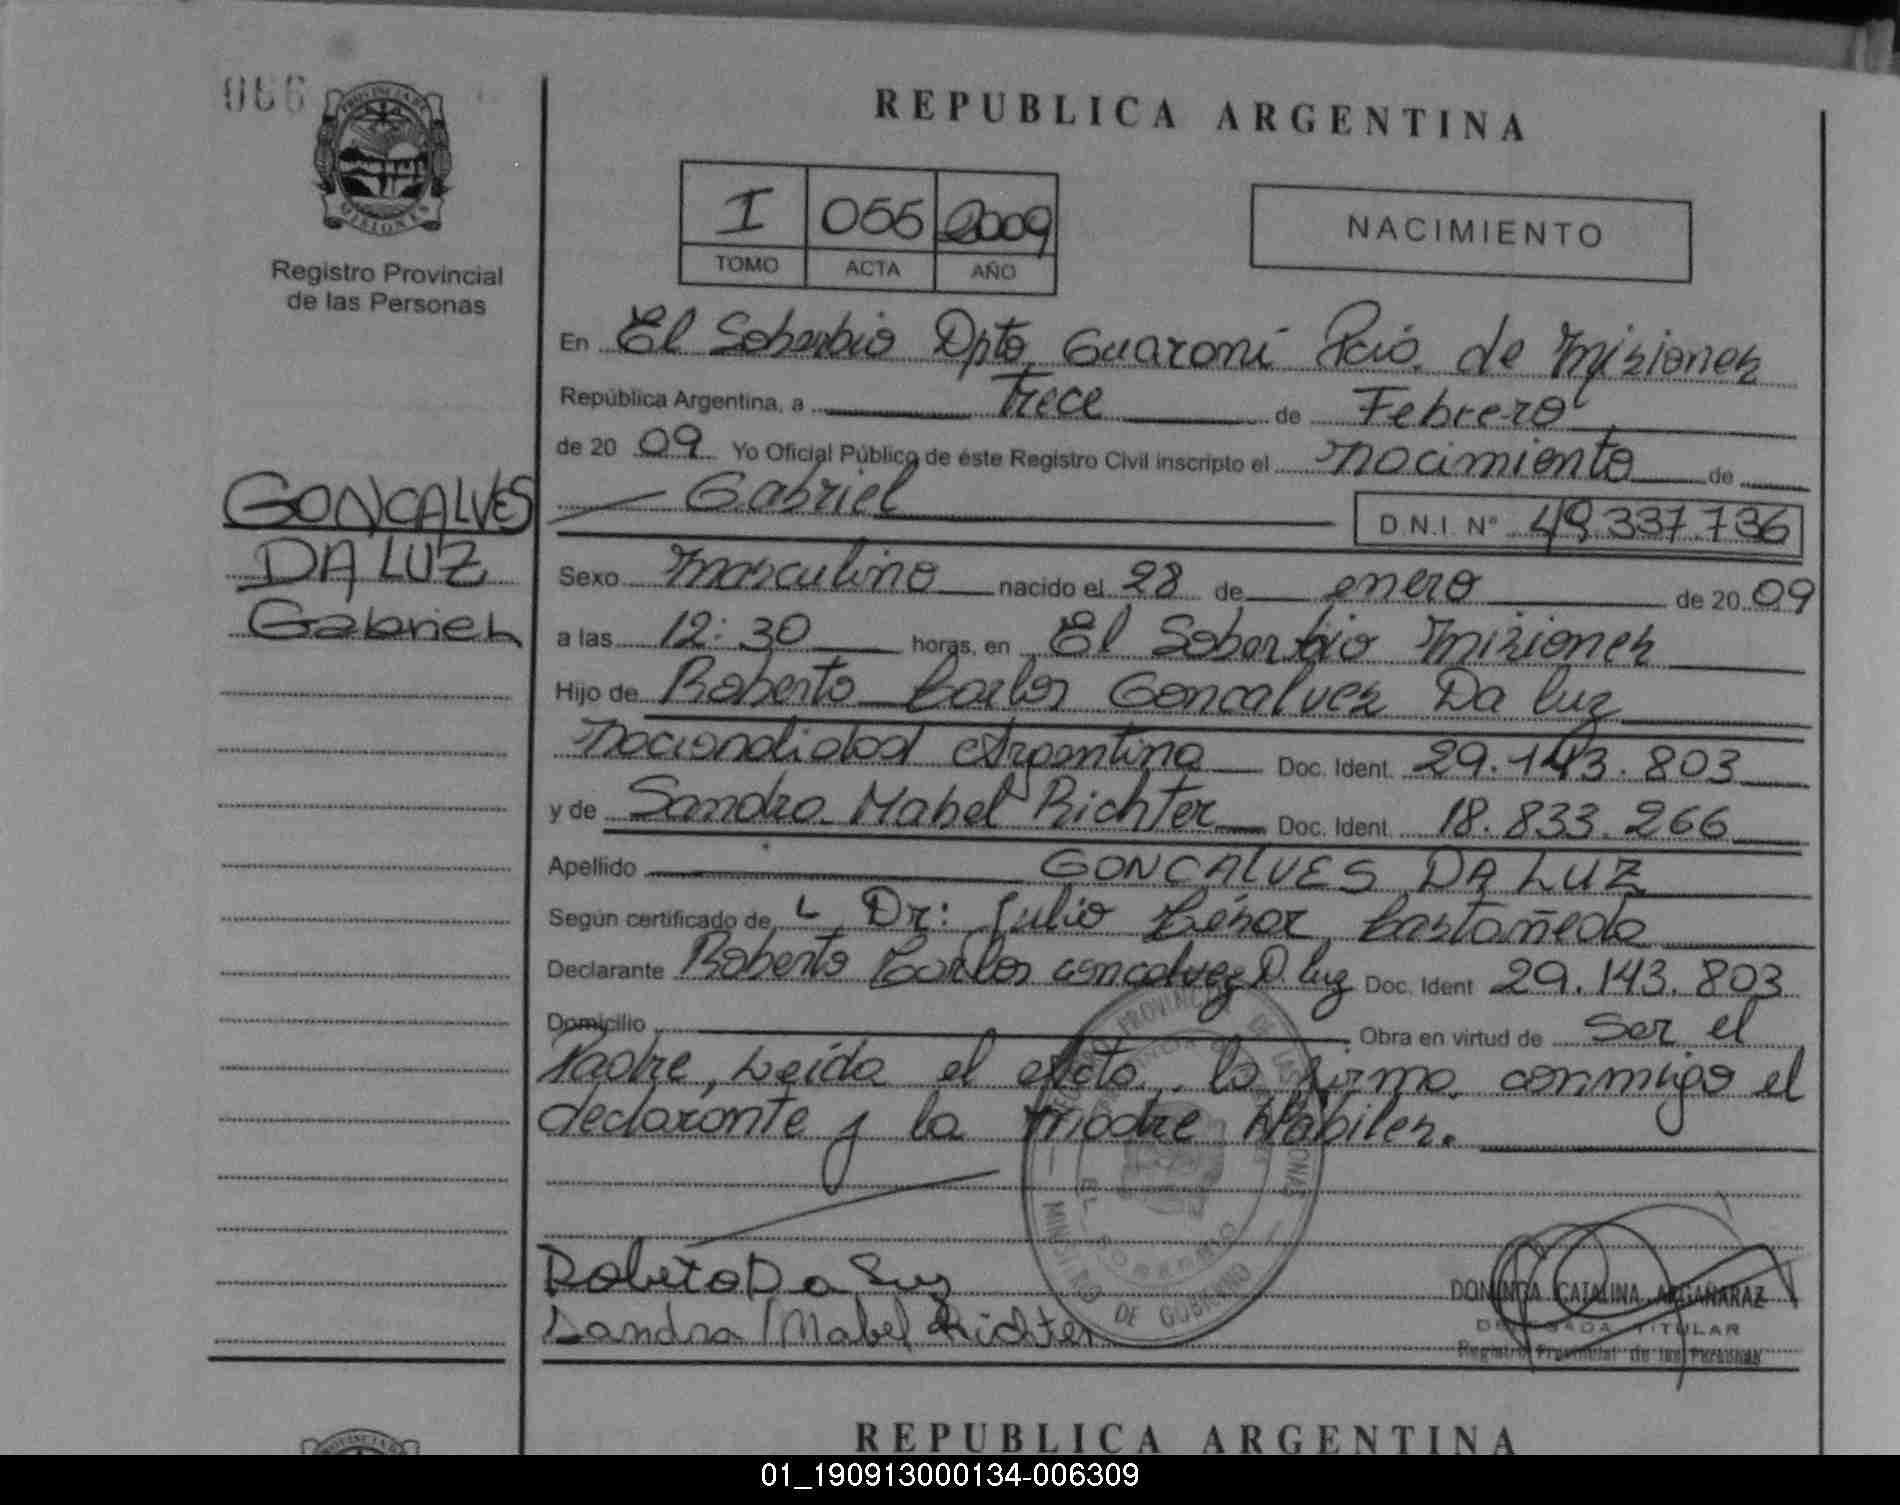 066
PROVINCIA DE
MISIONES
Registro Provincial
de las Personas
REPUBLICA ARGENTINA
I 055 2009
TOMO ACTA AÑO
NACIMIENTO
En El Soberbio Dpto Guaraní Pcia. de Misiones
República Argentina, a Trece de Febrero
de 20 09 Yo Oficial Público de éste Registro Civil inscripto el nacimiento de
Gabriel D.N.I. Nº 49.337.736
GONCALVES
DA LUZ
Gabriel
Sexo masculino nacido el 28 de enero de 20 09
a las 12:30 horas, en El Soberbio Misiones
Hijo de Roberto Carlos Goncalves Da luz
Nacionalidad Argentina Doc. Ident. 29.143.803
y de Sandra Mabel Richter Doc. Ident. 18.833.266
Apellido GONCALVES DA LUZ
Según certificado de Dr: Julio César Castañeda
Declarante Roberto Carlos Goncalvez D. luz Doc. Ident 29.143.803
Domicilio Obra en virtud de Ser el
Padre, Leída el Acta, la firma conmigo el
declarante y la madre Hábiles.
REGISTRO PROVINCIAL DE LAS PERSONAS
EL SOBERBIO
MINISTERIO DE GOBIERNO
Roberto Da Luz
Sandra Mabel Richter
DOMINGA CATALINA ARGAÑARAZ
DELEGADA TITULAR
Registro Provincial de las Personas
REPUBLICA ARGENTINA
01_190913000134-006309